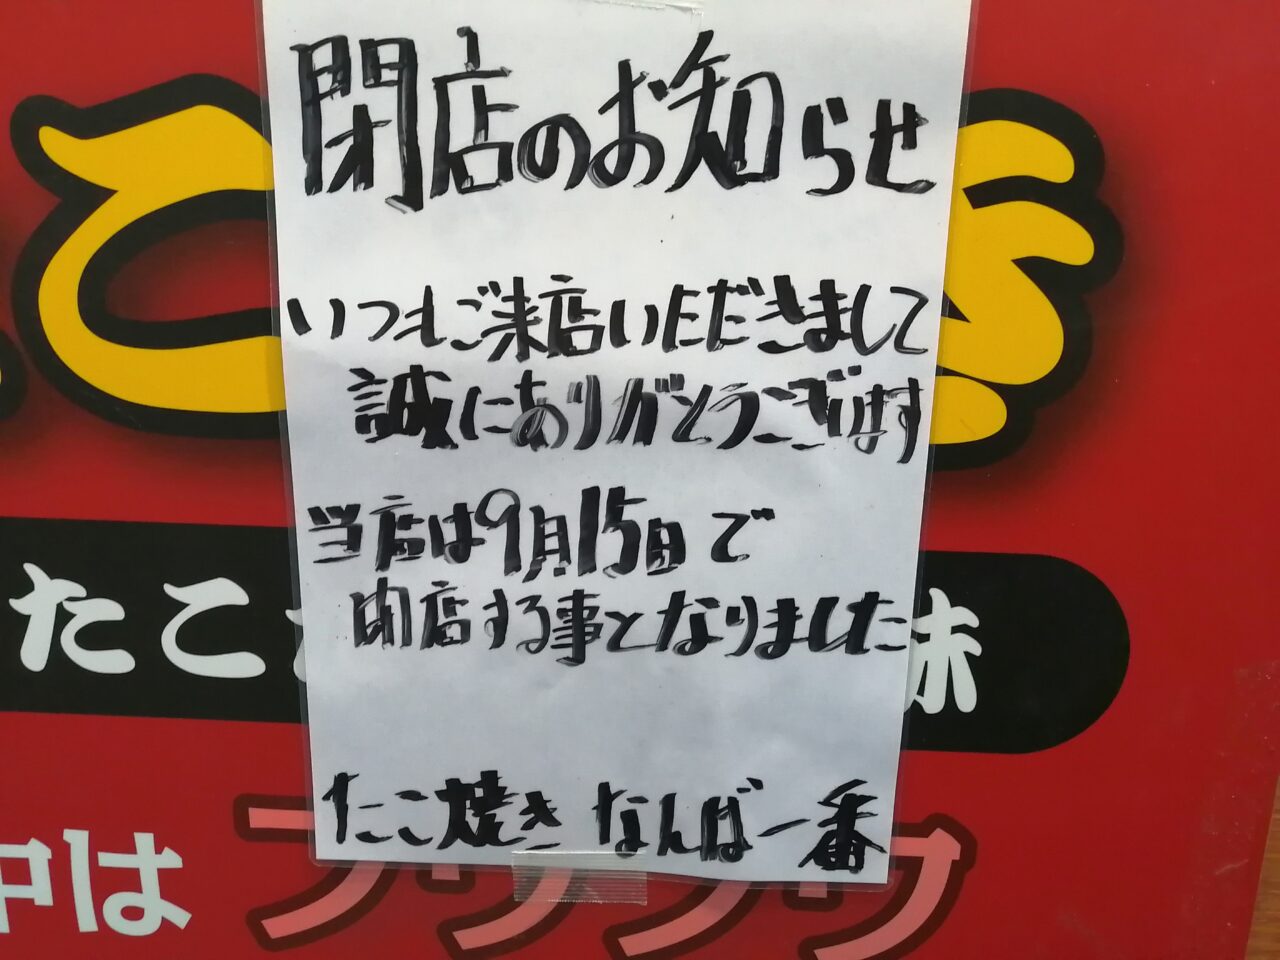 閉店のお知らせ
いつもご来店いただきまして
誠にありがとうございます
当店は9月15日で
閉店する事となりました
たこ焼き なんば一番
たこ
味
中は